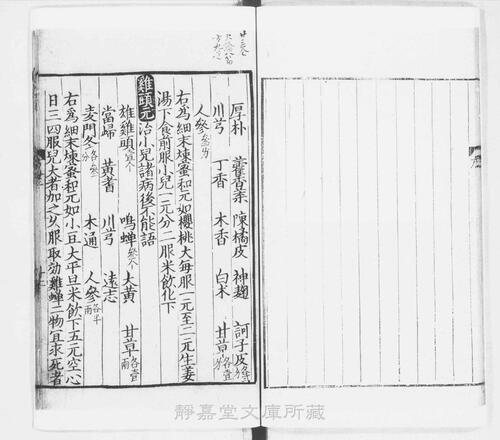 厚朴 藿香葉 陳橘皮 神麴 訶子皮
川芎 丁香 木香 白朮 甘草
人參
右為細末煉蜜和元如櫻桃大每服一元至二元生姜
湯下食前服小兒一元分二服米飲化下
雞頭元 治小兒諸病後不能語
雄雞頭壹个 鳴蟬參个 大黃 甘草各壹兩
當歸 黃耆 川芎 遠志
麦門冬 木通 人參各半兩
右為細末煉蜜和元如小豆大平旦米飲下五元空心
日三四服兒大者加之久服取効雞蟬二物宜求死者
靜嘉堂文庫所藏